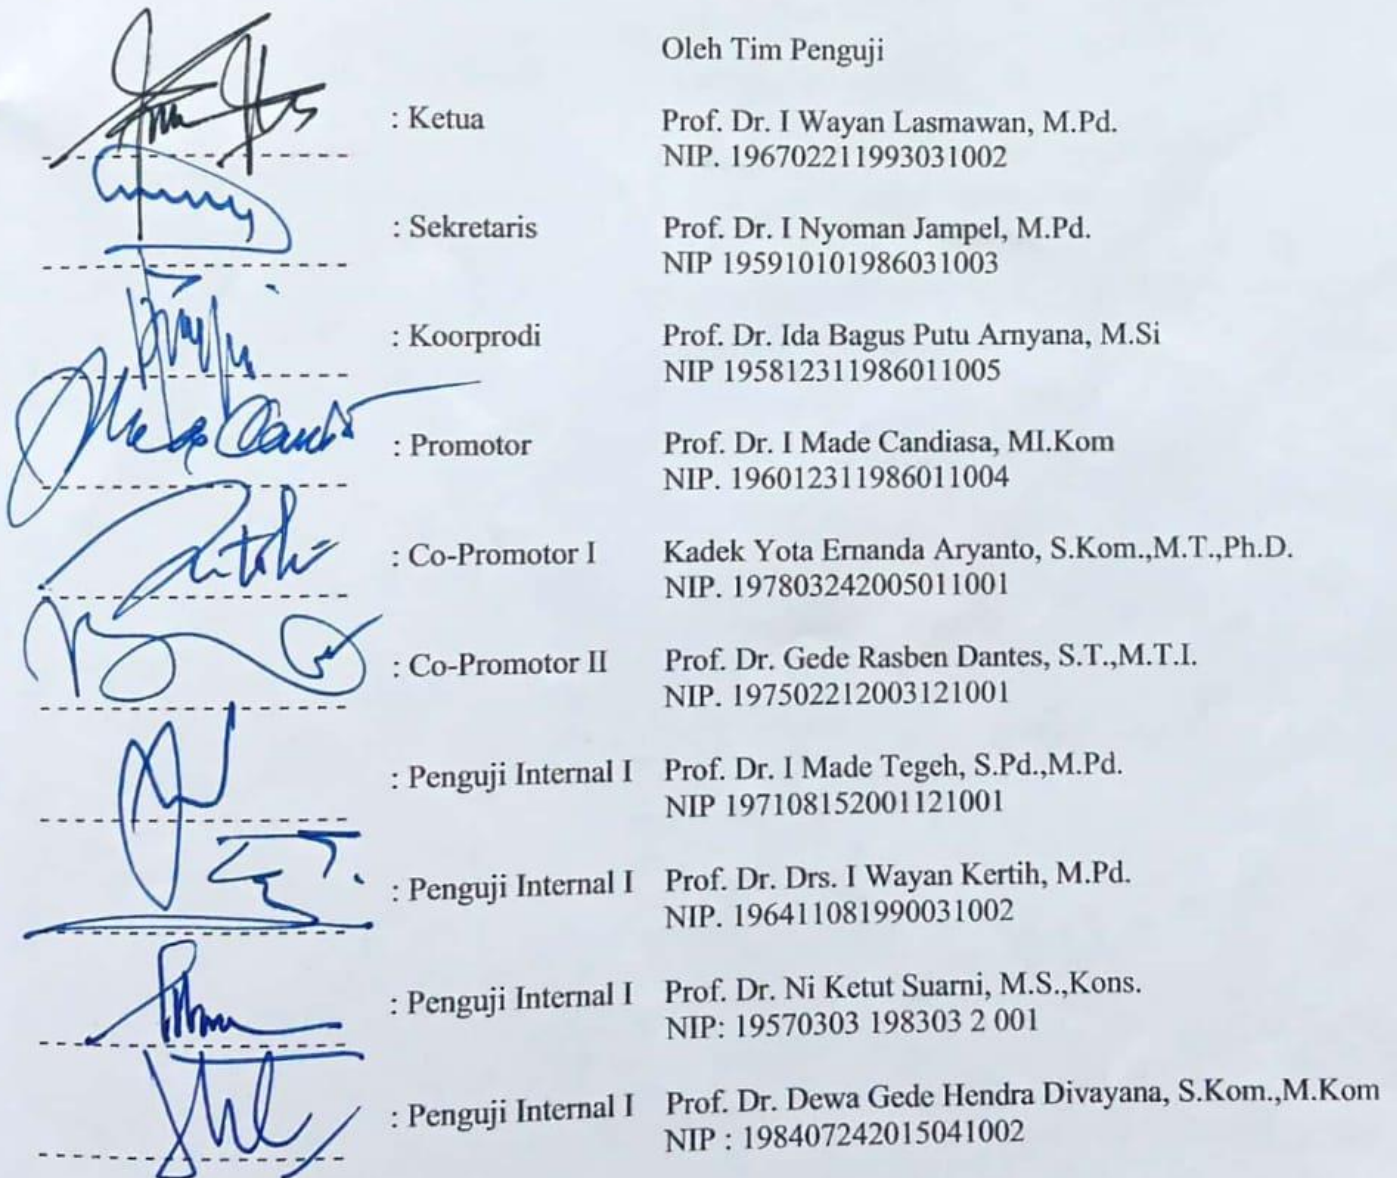 Oleh Tim Penguji
: Ketua Prof. Dr. I Wayan Lasmawan, M.Pd.
NIP. 196702211993031002
: Sekretaris Prof. Dr. I Nyoman Jampel, M.Pd.
NIP 195910101986031003
: Koorprodi Prof. Dr. Ida Bagus Putu Arnyana, M.Si
NIP 195812311986011005
: Promotor Prof. Dr. I Made Candiasa, MI.Kom
NIP. 196012311986011004
: Co-Promotor I Kadek Yota Ernanda Aryanto, S.Kom.,M.T.,Ph.D.
NIP. 197803242005011001
: Co-Promotor II Prof. Dr. Gede Rasben Dantes, S.T.,M.T.I.
NIP. 197502212003121001
: Penguji Internal I Prof. Dr. I Made Tegeh, S.Pd.,M.Pd.
NIP 197108152001121001
: Penguji Internal I Prof. Dr. Drs. I Wayan Kertih, M.Pd.
NIP. 196411081990031002
: Penguji Internal I Prof. Dr. Ni Ketut Suarni, M.S.,Kons.
NIP: 19570303 198303 2 001
: Penguji Internal I Prof. Dr. Dewa Gede Hendra Divayana, S.Kom.,M.Kom
NIP : 198407242015041002